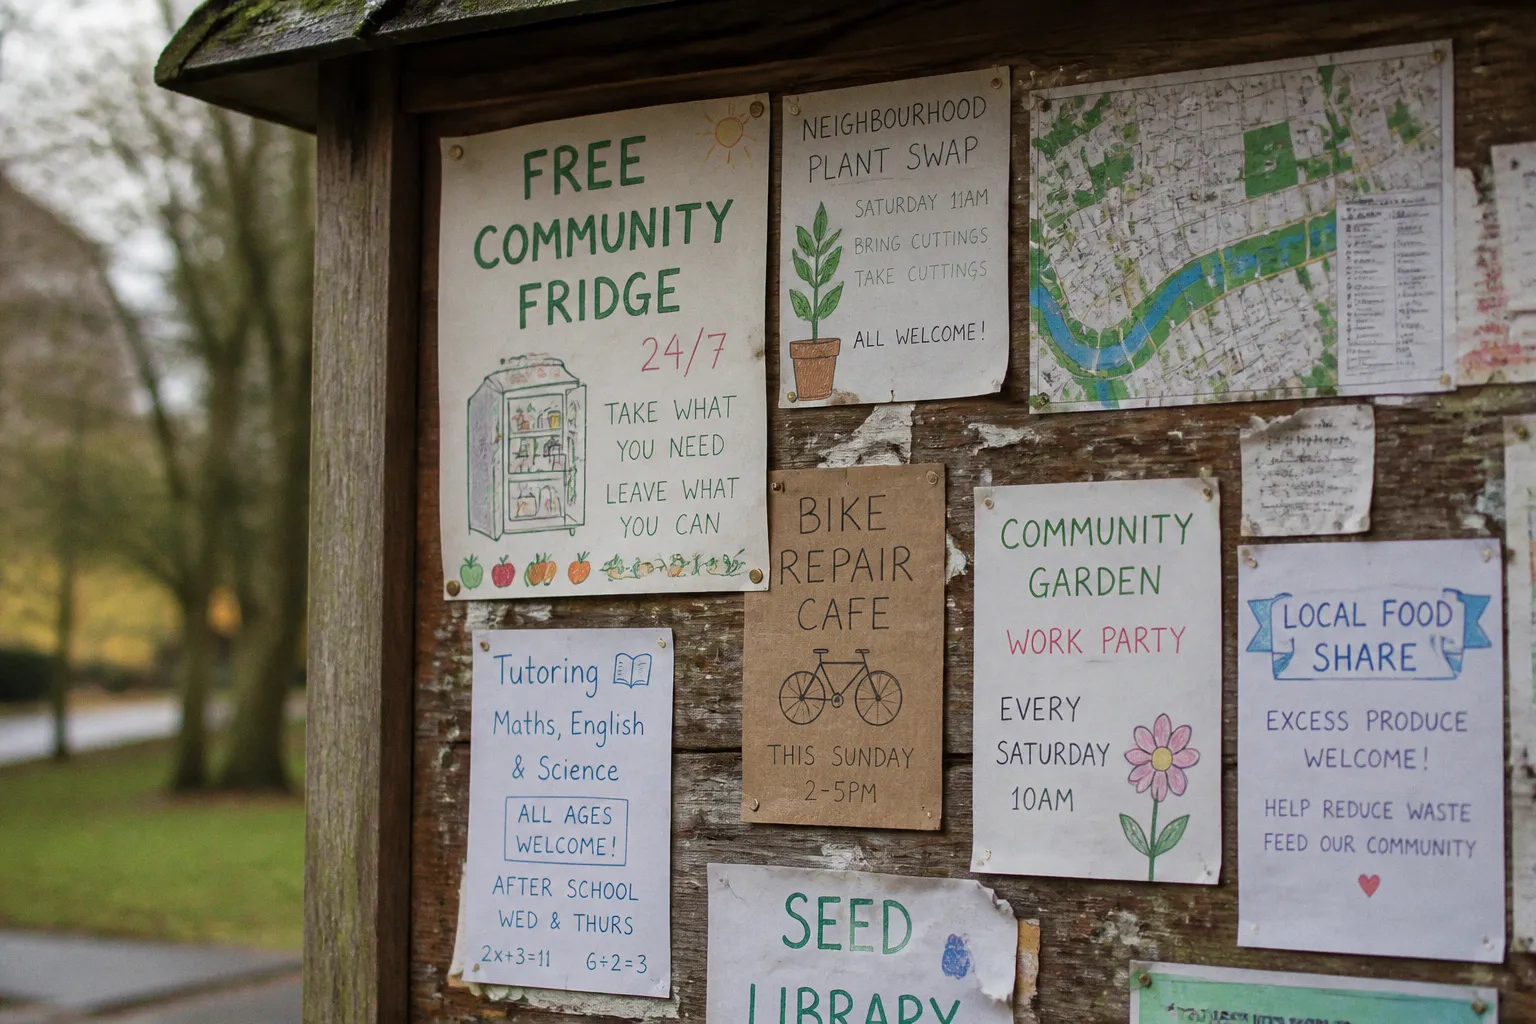 FREE
COMMUNITY
FRIDGE
24/7
TAKE WHAT
YOU NEED
LEAVE WHAT
YOU CAN
NEIGHBOURHOOD
PLANT SWAP
SATURDAY 11AM
BRING CUTTINGS
TAKE CUTTINGS
ALL WELCOME!
BIKE
REPAIR
CAFE
THIS SUNDAY
2-5PM
COMMUNITY
GARDEN
WORK PARTY
EVERY
SATURDAY
10AM
LOCAL FOOD
SHARE
EXCESS PRODUCE
WELCOME!
HELP REDUCE WASTE
FEED OUR COMMUNITY
Tutoring
Maths, English
& Science
ALL AGES
WELCOME!
AFTER SCHOOL
WED & THURS
2x+3=11 6÷2=3
SEED
LIBRARY